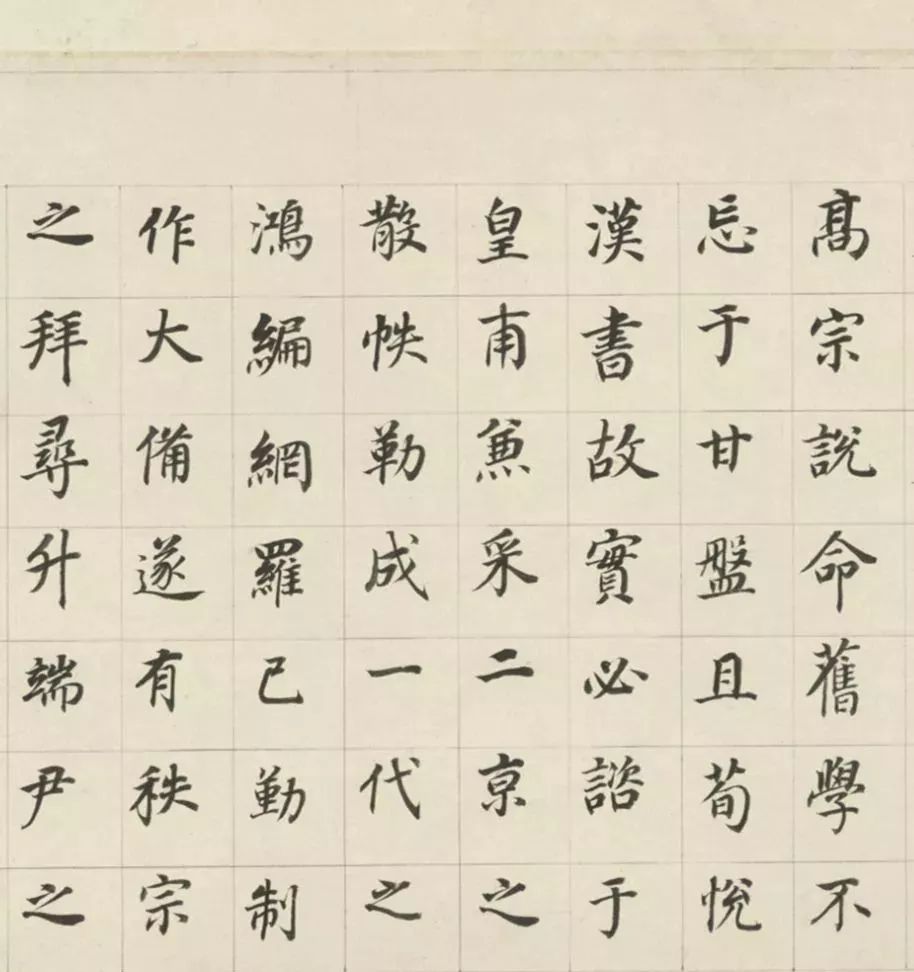 髙宗說命舊學不
忘于甘盤且荀悅
漢書故實必諮于
皇甫兼采二京之
散帙勒成一代之
鴻編網羅已勤制
作大備遂有秩宗
之拜尋升端尹之